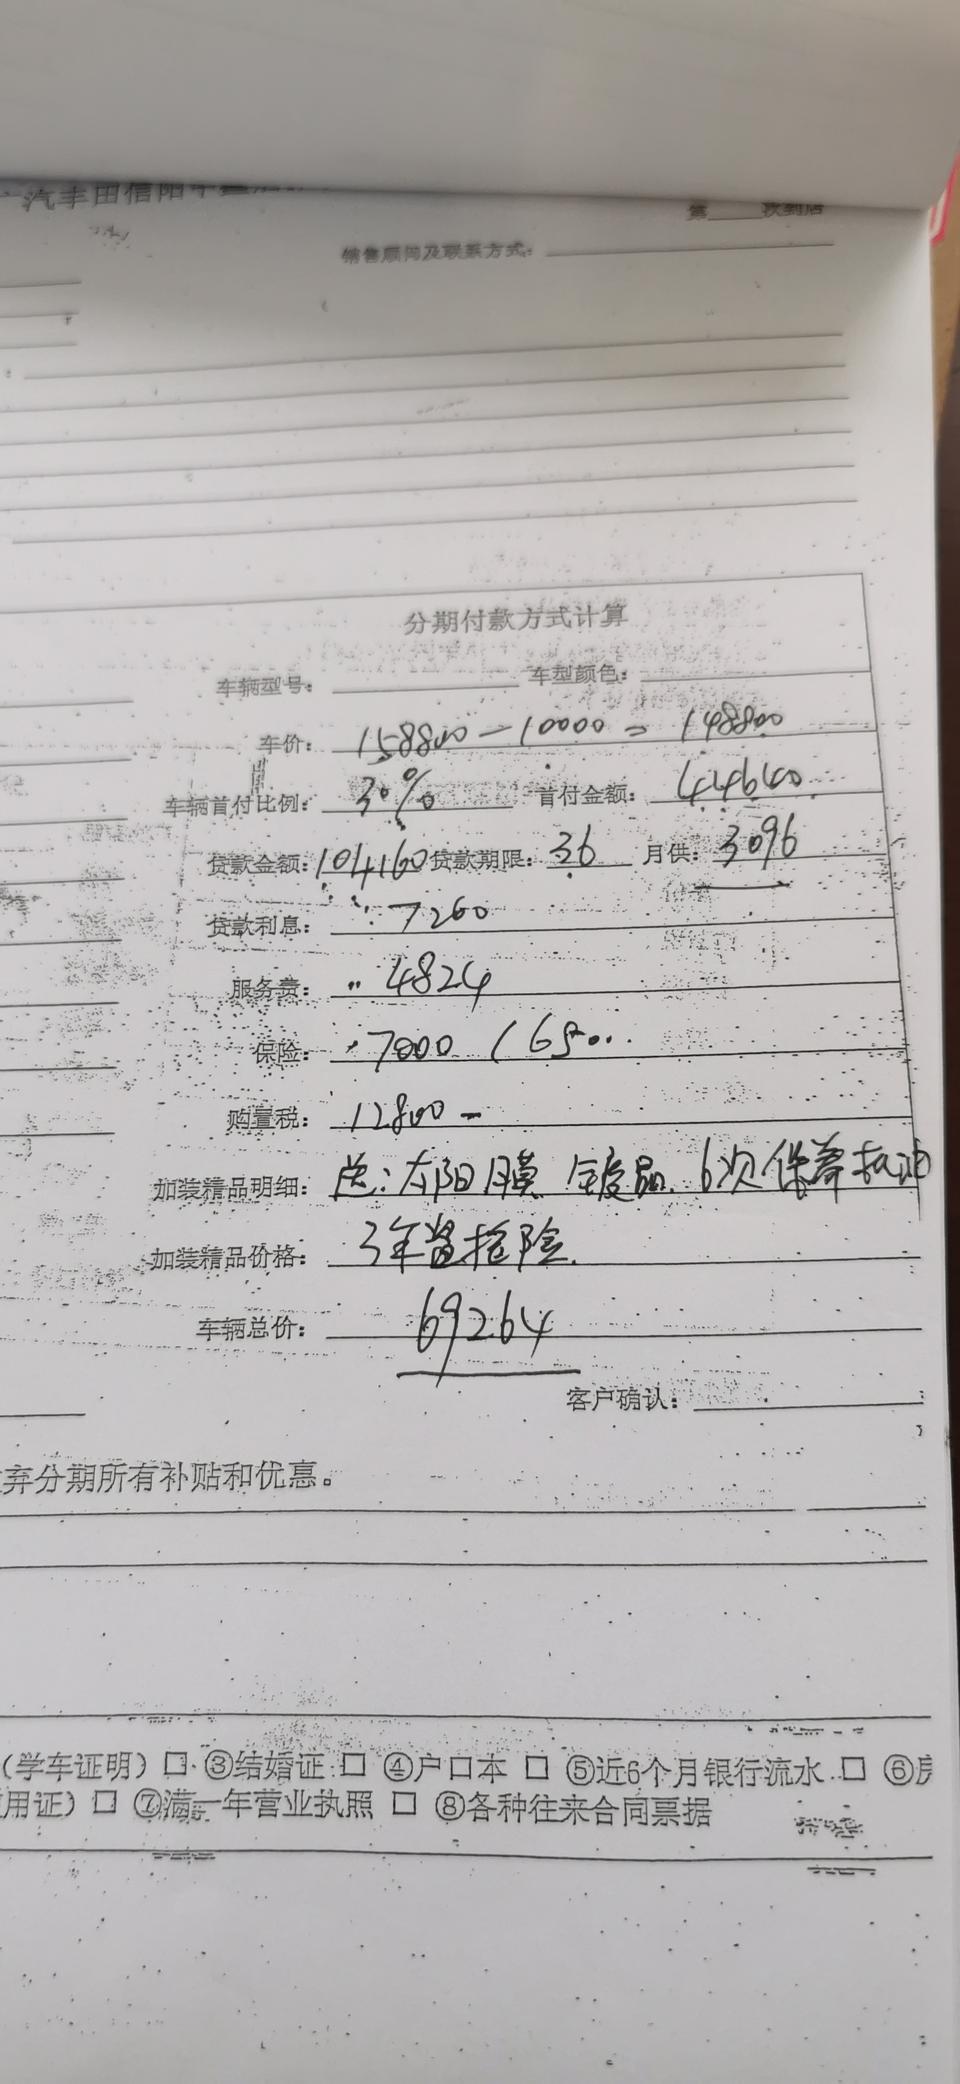 汽丰田信阳
第____次到店
销售顾问及联系方式:
分期付款方式计算
车辆型号: 车型颜色:
车价: 158800-10000=148800
车辆首付比例: 30% 首付金额: 44640
贷款金额: 104160 贷款期限: 36 月供: 3096
贷款利息: 7260
服务费: 4824
保险: 7000 / 6500
购置税: 12800
加装精品明细: 送:太阳膜 6次保养机油
加装精品价格: 3年盗抢险
车辆总价: 69264
客户确认:
弃分期所有补贴和优惠。
(学车证明)□ ③结婚证 □ ④户口本 □ ⑤近6个月银行流水 □ ⑥
用证)□ ⑦满一年营业执照 □ ⑧各种往来合同票据